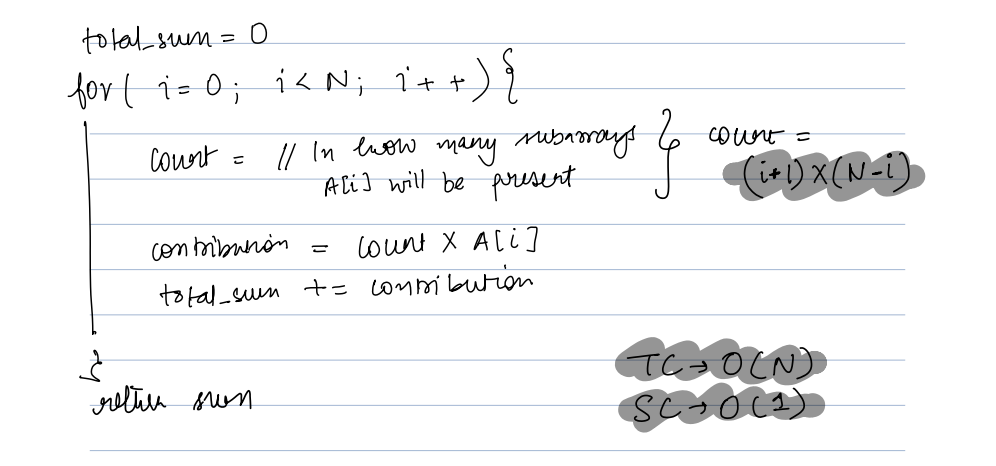 total_sum = 0
for( i=0; i<N; i++){
count = // In how many subarrays } count =
A[i] will be present (i+1)X(N-i)
contribution = count X A[i]
total_sum += contribution
}
return sum
TC→O(N)
SC→O(1)